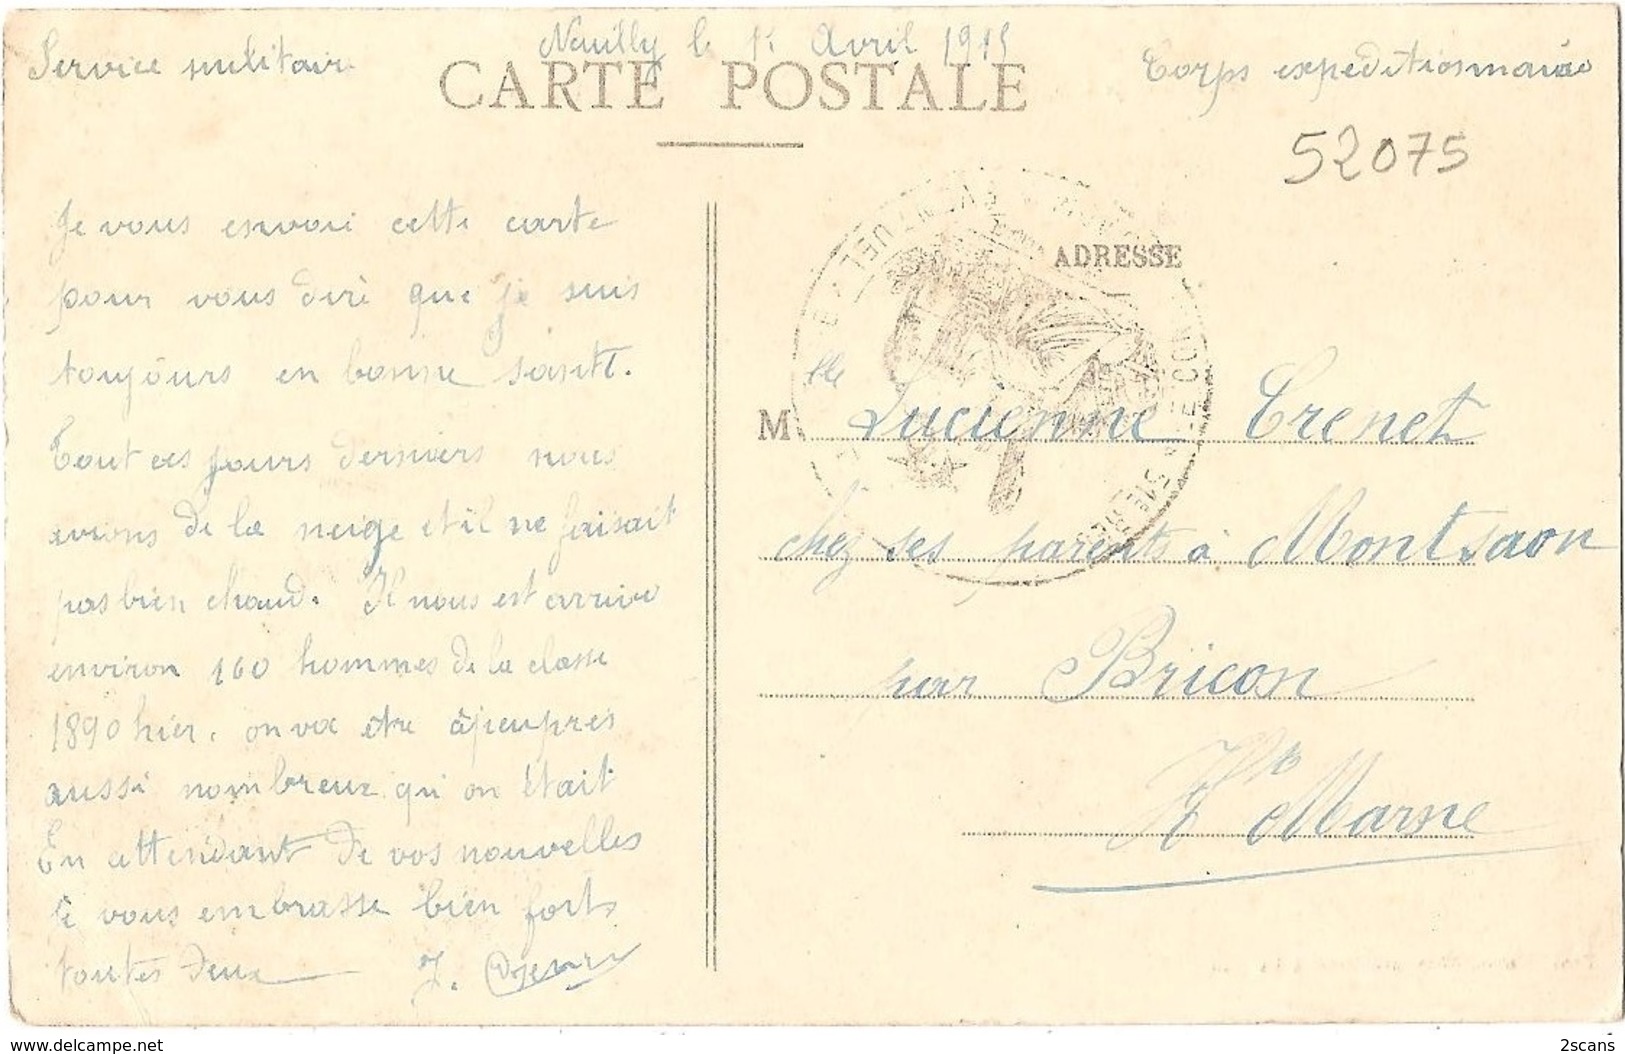 Neuilly le 1r Avril 1915
Service militair
Corps expeditionnaire
CARTE POSTALE
52075
Je vous envoie cette carte
pour vous dire que je suis
toujours en bonne santé.
Tout ces jours derniers nous
avions de la neige et il ne faisait
pas bien chaud. Il nous est arrivé
environ 160 hommes de la classe
1890 hier. on va etre àpeuprès
aussi nombreux qu'on était
En attendant de vos nouvelles
Je vous embrasse bien forts
toutes deux
ADRESSE
M lle Lucienne Trenet
chez ses parents à Montsaon
par Bricon
Hte Marne
www.delcampe.net
2scans